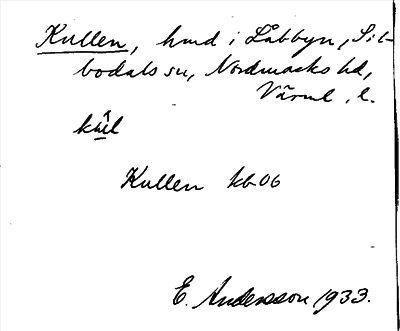 Kullen, hmd i Labbyn, Sil-
bodals sn, Nordmarks hd,
Värml. l.
Kullen kb 06
E. Andersson 1933.